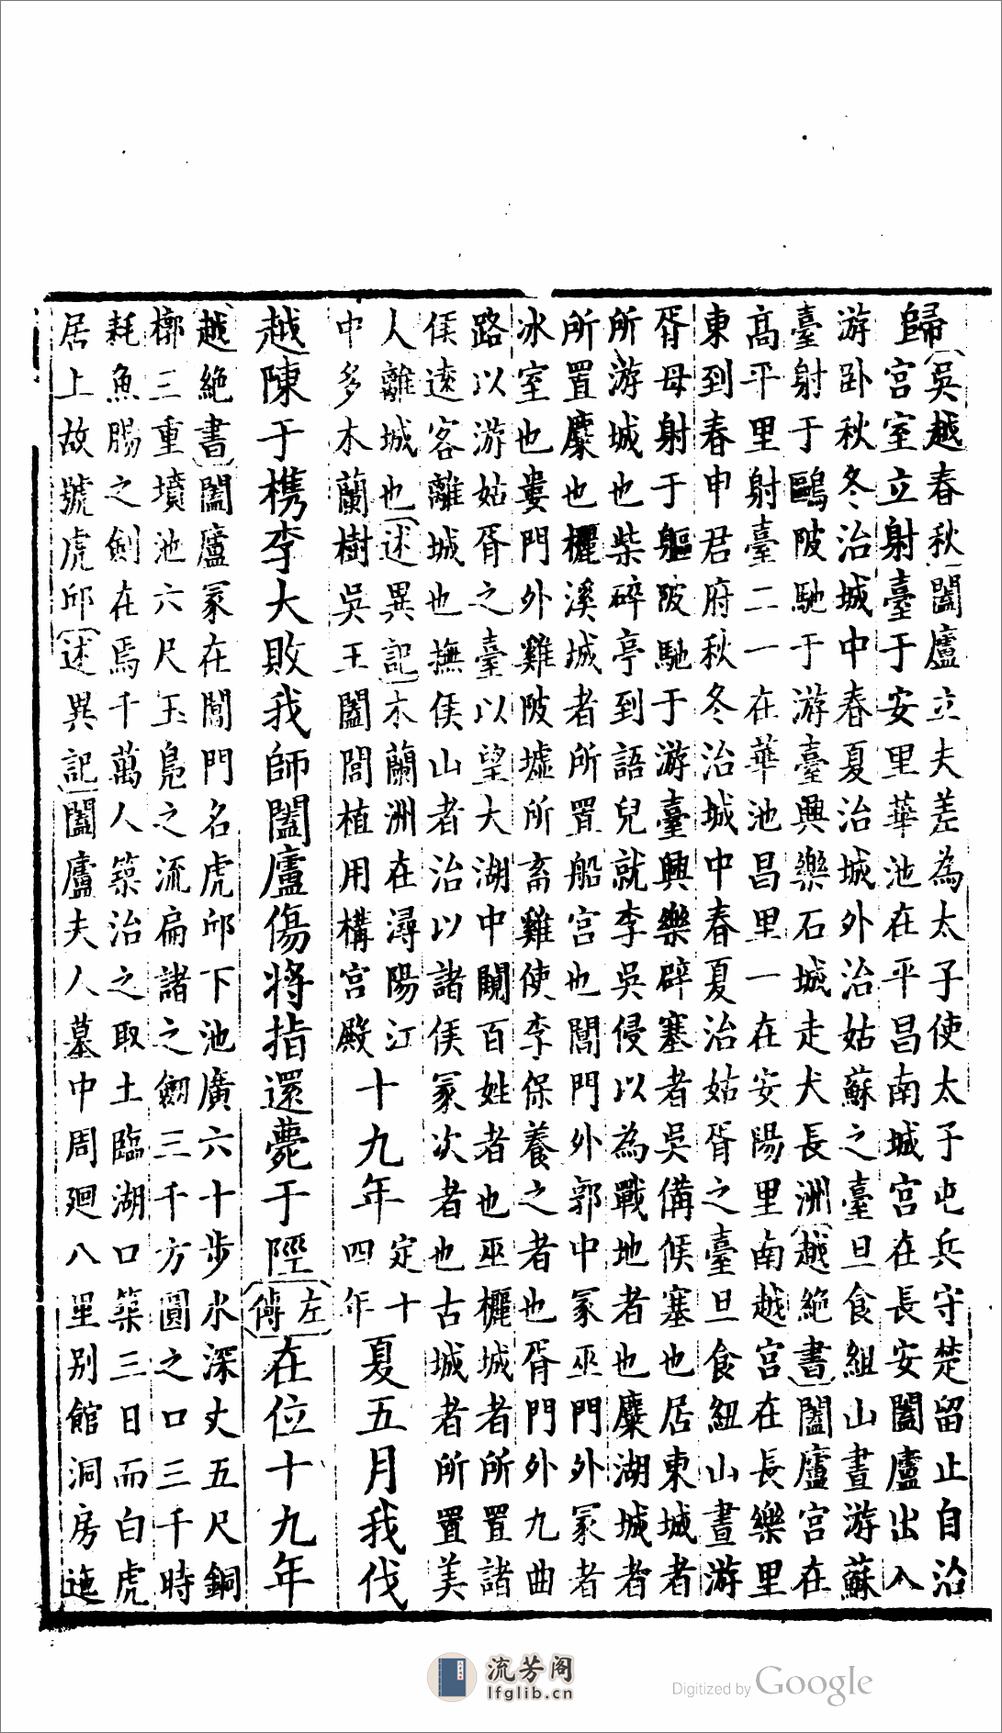 歸
吳越春秋闔廬立夫差為太子使太子屯兵守楚留止自治
宮室立射臺于安里華池在平昌南城宮在長安闔廬出入
游卧秋冬治城中春夏治城外治姑蘇之臺旦食組山晝游蘇
臺射于鷗陂馳于游臺興樂石城走犬長洲越絕書闔廬宮在
高平里射臺二一在華池昌里一在安陽里南越宮在長樂里
東到春申君府秋冬治城中春夏治姑胥之臺旦食紐山晝游
胥母射于軀陂馳于游臺興樂辟塞者吳備候塞也居東城者
所游城也柴碎亭到語兒就李吳侵以為戰地者也麋湖城者
所置麋也欐溪城者所置船宮也閶門外郭中冢巫門外冢者
冰室也婁門外雞陂墟所畜雞使李保養之者也胥門外九曲
路以游姑胥之臺以望大湖中闚百姓者也巫欐城者所置諸
侯遠客離城也撫侯山者治以諸侯冢次者也古城者所置美
人離城也述異記木蘭洲在潯陽江
中多木蘭樹吳王闔閭植用構宮殿
十九年定十四年夏五月我伐
越陳于檇李大敗我師闔廬傷將指還薨于陘左傳在位十九年
越絕書闔廬冢在閶門名虎邱下池廣六十步水深丈五尺銅
槨三重墳池六尺玉鳧之流扁諸之劒三千方圓之口三千時
耗魚腸之劍在焉千萬人築治之取土臨湖口築三日而白虎
居上故號虎邱述異記闔廬夫人墓中周廻八里別館洞房迤
流芳阁
lfglib.cn
Digitized by Google